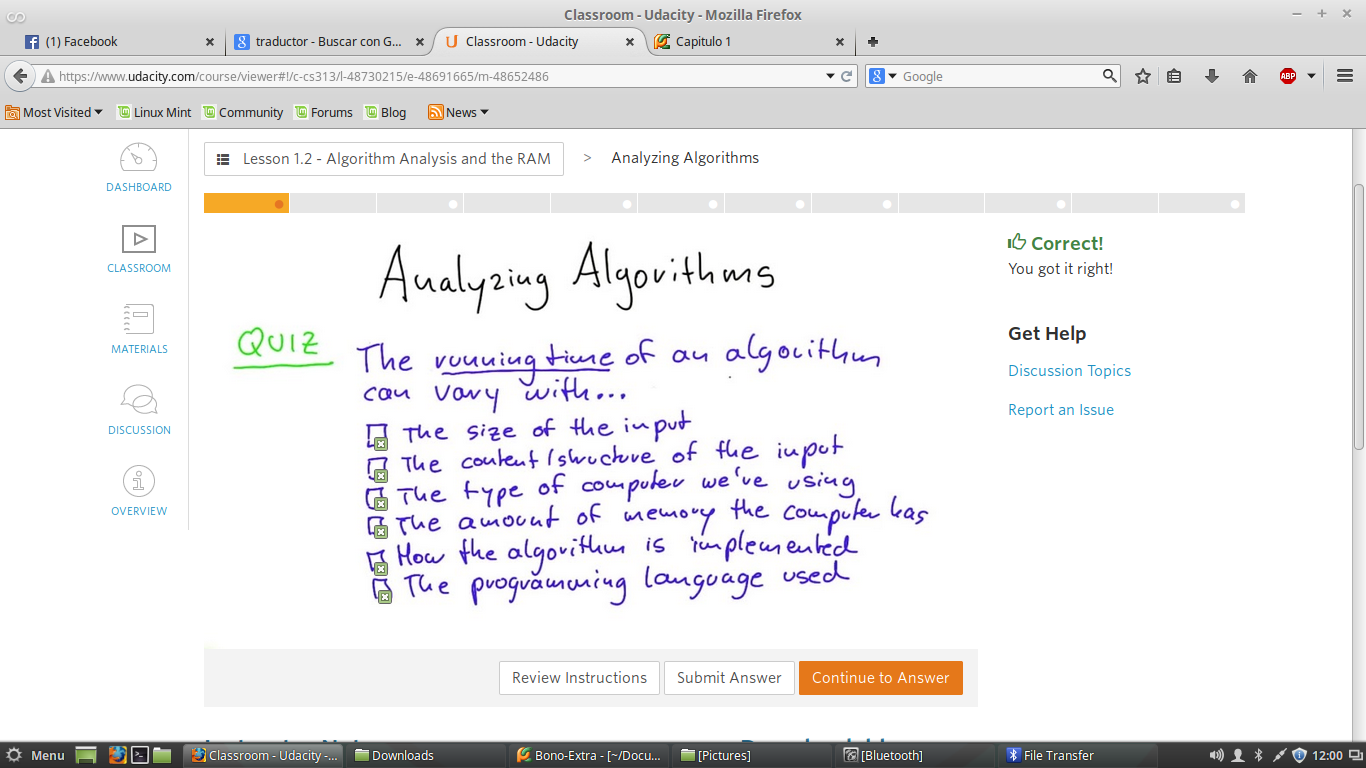 Classroom - Udacity - Mozilla Firefox
(1) Facebook
traductor - Buscar con G...
Classroom - Udacity
Capitulo 1
https://www.udacity.com/course/viewer#!/c-cs313/l-48730215/e-48691665/m-48652486
Google
ABP
Most Visited
Linux Mint
Community
Forums
Blog
News
DASHBOARD
CLASSROOM
MATERIALS
DISCUSSION
OVERVIEW
Lesson 1.2 - Algorithm Analysis and the RAM > Analyzing Algorithms
Analyzing Algorithms
QUIZ
The running time of an algorithm
can vary with...
The size of the input
The content/structure of the input
The type of computer we've using
The amount of memory the computer has
How the algorithm is implemented
The programming language used
Correct!
You got it right!
Get Help
Discussion Topics
Report an Issue
Review Instructions
Submit Answer
Continue to Answer
Menu
Classroom - Udacity -...
Downloads
Bono-Extra - [~/Docu...
[Pictures]
[Bluetooth]
File Transfer
12:00